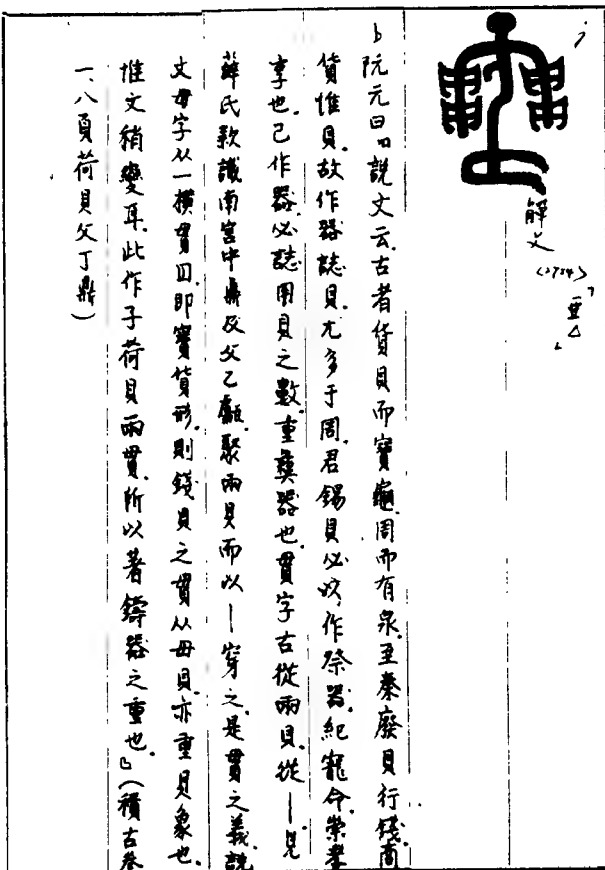 解文
（2784）
「亜△」
阮元曰「說文云.古者貨貝而寶龜.周而有泉.至秦廢貝行錢.商
貨惟貝.故作器誌貝.尤多于周.君錫貝必以作祭器.紀寵命.崇孝
享也.己作器.必誌用貝之數.重彝器也.貫字古從兩貝.從｜.見
薛氏款識南宮中鼎及父乙甗.聚兩貝而以｜穿之.是貫之義.說
文毌字从一橫貫𠀃.即寶貨形.則錢貝之貫从毌貝.亦重貝象也.
惟文稍變耳.此作子荷貝兩貫.所以著鑄器之重也.」（積古卷
一、八頁荷貝父丁鼎）